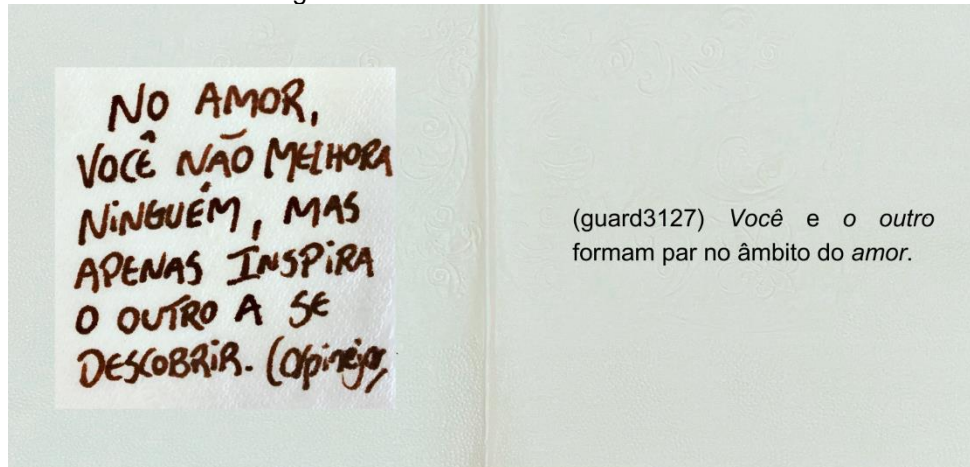 NO AMOR,
VOCÊ NÃO MELHORA
NINGUÉM, MAS
APENAS INSPIRA
O OUTRO A SE
DESCOBRIR.
(guard3127) Você e o outro
formam par no âmbito do amor.